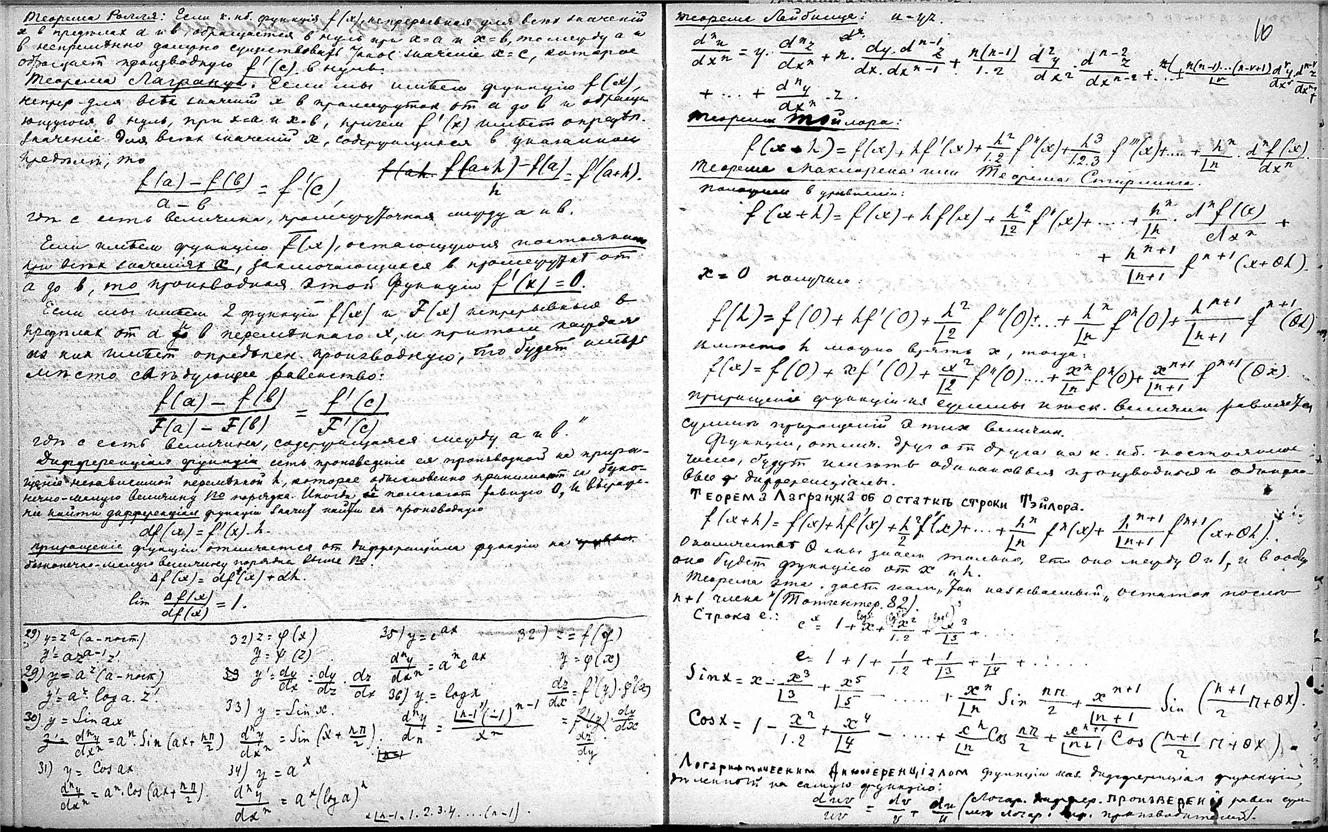 Теорема Ролля: Если к. нб. функція f(x), непрерывная для всѣхъ значеній
x в предѣлах a и b обращается в нуль при x=a и x=b, то между a и
b непремѣнно должно существовать значеніе x=c, которое
обращает производную f'(c) в нуль.
Теорема Лагранжа: Если мы имѣем функцію f(x),
непрер. для всѣх значений x в промежуткѣ от a до b и обраща-
ющуюся в нуль, при x=a и x=b, причем f'(x) имѣет опредѣл.
значеніе для всѣх значеній x, содержащихся в указанном
предѣлѣ, то
f(a) − f(b) / a − b = f'(c), f(a+h)−f(a) / h = f'(a+h).
гдѣ c есть величина, промежуточная между a и b.
Если имѣем функцію f(x), остающуюся постоянною
при всѣх значеніях x, заключающихся в промежуткѣ от
a до b, то производная этой функціи f'(x) = 0.
Если мы имѣем 2 функціи f(x) и F(x) непрерывныя в
предѣлах от a до b перемѣннаго x, и притом каждая
из них имѣет опредѣлен. производную, то будет имѣть
мѣсто слѣдующее равенство:
f(a) − f(b) / F(a) − F(b) = f'(c) / F'(c)
гдѣ c есть величина, содержащаяся между a и b."
Дифференціал функціи есть произведеніе ея производной на прира-
щеніе независимой перемѣнной h, которое обыкновенно принимается за беско-
нечно-малую величину 1го порядка. Иногда полагают равную 0, и выраже-
ніе найти дифференціал функціи значит найти ея производную
df(x) = f'(x).h.
Приращеніе функціи отличается от дифференціала функціи на
безконечно-малую величину порядка выше 1го.
Δf(x) = df(x) + αh.
lim Δf(x) / df(x) = 1.
29) y=z^a (a-пост)
y'=az^{a−1}z'
29) y=a^z (a-пост)
y'=a^z. log a. z'
30) y=Sin ax
d^n y / dx^n = a^n. Sin (ax+nπ/2)
31) y= Cos ax
d^n y / dx^n = a^n. Cos (ax+nπ/2)
32) z=φ(x)
y=φ(z)
y'=dy/dx=dy/dz . dz/dx
33) y=Sin x.
d^n y / dx^n = Sin (x+nπ/2)
34) y=a^x
d^n y / dx^n = a^x (log a)^n
35) y=e^{ax}
d^n y / dx^n = a^n e^{ax}
36) y=log x
32) z=f(y)
y=φ(x)
dz/dx = f'(y).φ'(x)
1.2.3.4. ... (n−1).
10
Теорема Лейбница: u=yz.
d^n u / dx^n = y. d^n z / dx^n + n. dy. d^{n−1}z / dx. dx^{n−1} + n(n−1) / 1.2 d^2 y / dx^2 . d^{n−2}z / dx^{n−2} + ... + n(n−1)...(n−r+1) / ⌊r d^r y / dx^r d^{n−r}z / dx^{n−r}
+ ... + d^n y / dx^n . z.
Теорема Тэйлора:
f(x+h) = f(x) + hf'(x) + h^2 / 1.2 f''(x) + h^3 / 1.2.3 f'''(x) + ... + h^n / ⌊n . d^n f(x) / dx^n.
Теорема Маклорена или Теорема Стирлинга.
Положим в уравненіи:
f(x+h) = f(x) + hf'(x) + h^2 / ⌊2 f''(x) + ... + h^n / ⌊n . d^n f(x) / dx^n +
+ h^{n+1} / ⌊n+1 f^{n+1}(x+θh).
x = 0 получим
f(h) = f(0) + hf'(0) + h^2 / ⌊2 f''(0) + ... + h^n / ⌊n f^n(0) + h^{n+1} / ⌊n+1 f^{n+1}(θh)
вмѣсто h можно взять x, тогда:
f(x) = f(0) + xf'(0) + x^2 / ⌊2 f''(0) ... + x^n / ⌊n f^n(0) + x^{n+1} / ⌊n+1 f^{n+1}(θx).
Приращеніе функціи из суммы нѣск. величин равняется
суммѣ приращеній этих величин.
Функціи, отлич. друг от друга на к. нб. постоянное
число, будут имѣть одинаковыя производныя и одинако-
вые дифференціалы.
Теорема Лагранжа об остаткѣ строки Тэйлора.
f(x+h) = f(x) + hf'(x) + h^2 / 2 f''(x) + ... + h^n / ⌊n f^n(x) + h^{n+1} / ⌊n+1 f^{n+1}(x+θh).
О количествѣ θ мы знаем только, что оно между 0 и 1, и вообще
оно будет функціею от x и h.
Теорема эта дает нам так называемый "остаток послѣ
n+1 члена" (Тотгентер. 82).
Строка e:
e^x = 1 + x + x^2 / 1.2 + x^3 / ⌊3 + ...
e = 1 + 1 + 1 / 1.2 + 1 / ⌊3 + 1 / ⌊4 + ......
Sin x = x − x^3 / ⌊3 + x^5 / ⌊5 − ...... + x^n / ⌊n Sin nπ / 2 + x^{n+1} / ⌊n+1 Sin (n+1 / 2 π + θx).
Cos x = 1 − x^2 / 1.2 + x^4 / ⌊4 − ...... + x^n / ⌊n Cos nπ / 2 + x^{n+1} / ⌊n+1 Cos (n+1 / 2 π + θx).
Логарифмическим Дифференціалом функціи наз. дифференціал функціи,
дѣленный на самую функцію:
duv / uv = dv / v + du / u (Логар. диффер. произведенія равен сум-
мѣ логар. производителей).